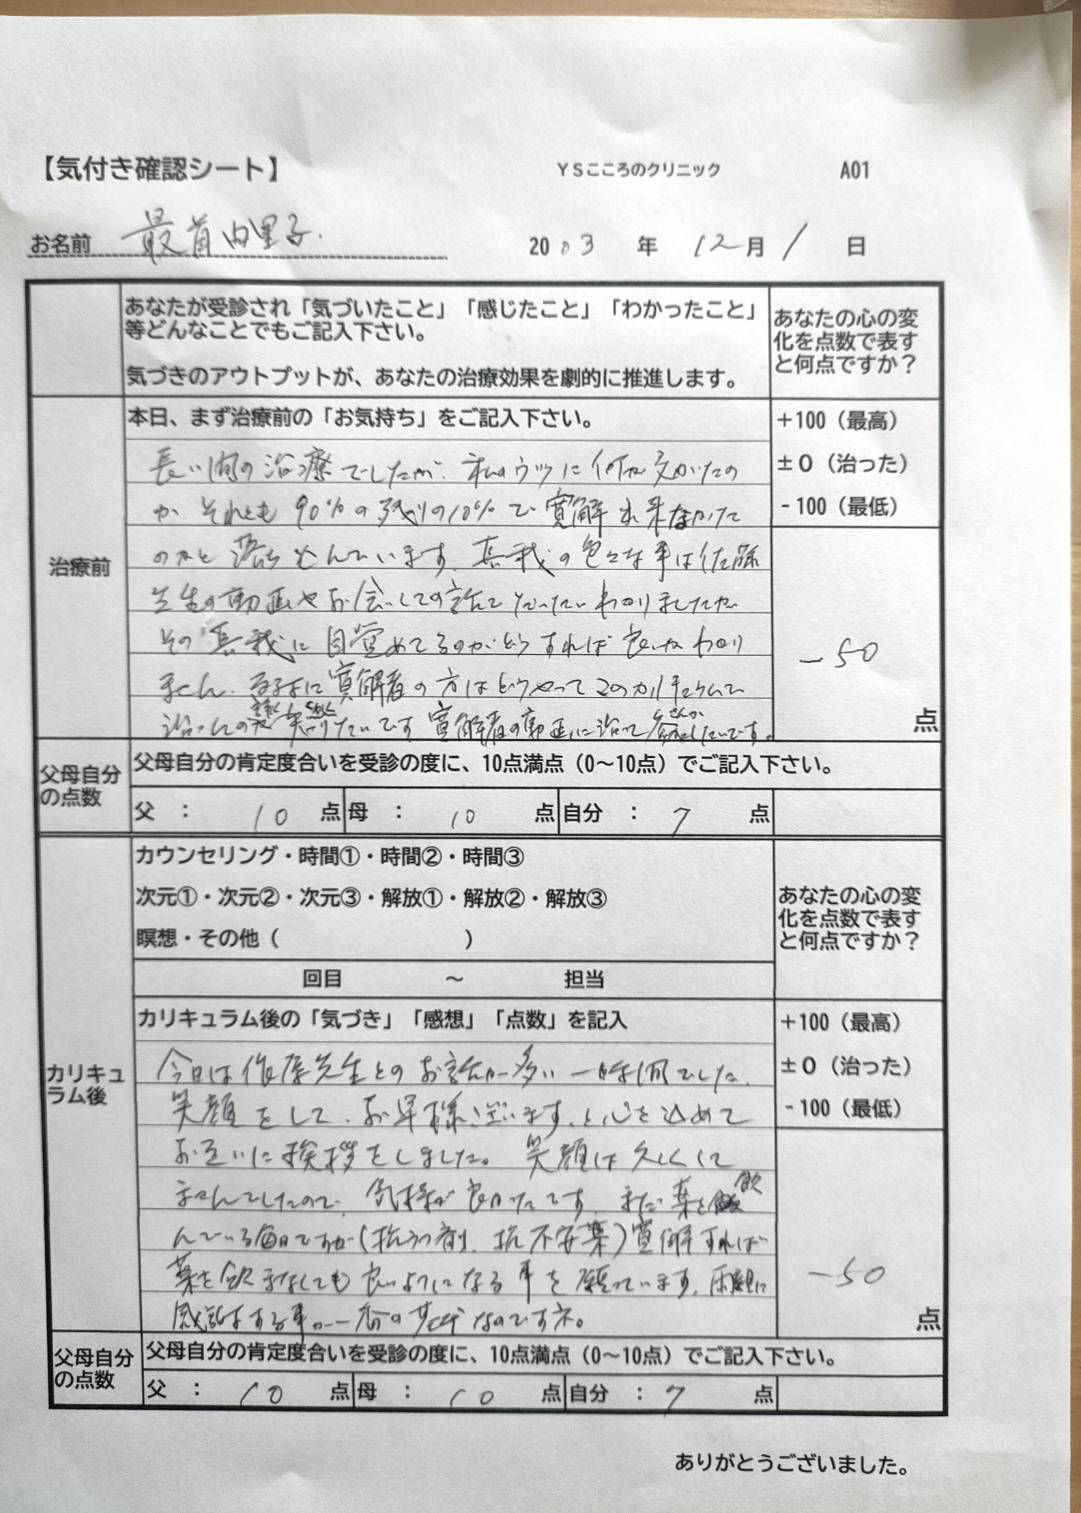 【気付き確認シート】
YSこころのクリニック
A01
お名前 最首由里子.
2003年 12月 1日
あなたが受診され「気づいたこと」「感じたこと」「わかったこと」
等どんなことでもご記入下さい。
気づきのアウトプットが、あなたの治療効果を劇的に推進します。
あなたの心の変
化を点数で表す
と何点ですか？
治療前
本日、まず治療前の「お気持ち」をご記入下さい。
長い間の治療でしたが、私のウツに何が欠けたの
か、それとも90%の残りの10%で寛解出来なかった
のかと落ち込んでいます。真我の色々な事は佐藤
先生の動画やお会いしての話でだいたいわかりましたが
その真我に目覚めてるのかどうすれば良いかわかり
ません。寛解者の方はどうやってこのカリキュラムで
治ったの 知りたいです 寛解者の動画に治って参加したいです。
+100（最高）
±0（治った）
-100（最低）
-50
点
父母自分
の点数
父母自分の肯定度合いを受診の度に、10点満点（0～10点）でご記入下さい。
父 ： 10 点 母 ： 10 点 自分 ： 7 点
カリキュ
ラム後
カウンセリング・時間①・時間②・時間③
次元①・次元②・次元③・解放①・解放②・解放③
瞑想・その他（ ）
回目 ～ 担当
あなたの心の変
化を点数で表す
と何点ですか？
カリキュラム後の「気づき」「感想」「点数」を記入
今日は佐藤先生とのお話が多い一時間でした。
笑顔をして、お早様ございます、と心を込めて
お互いに挨拶をしました。笑顔は久しくして
ませんでしたので、気持が良かったです。まだ薬を飲
んでいる毎日ですが（抗うつ剤、抗不安薬）寛解すれば
薬を飲まなくても良いようになる事を願っています。両親に
感謝する事が一番の基本なのですネ。
+100（最高）
±0（治った）
-100（最低）
-50
点
父母自分
の点数
父母自分の肯定度合いを受診の度に、10点満点（0～10点）でご記入下さい。
父 ： 10 点 母 ： 10 点 自分 ： 7 点
ありがとうございました。